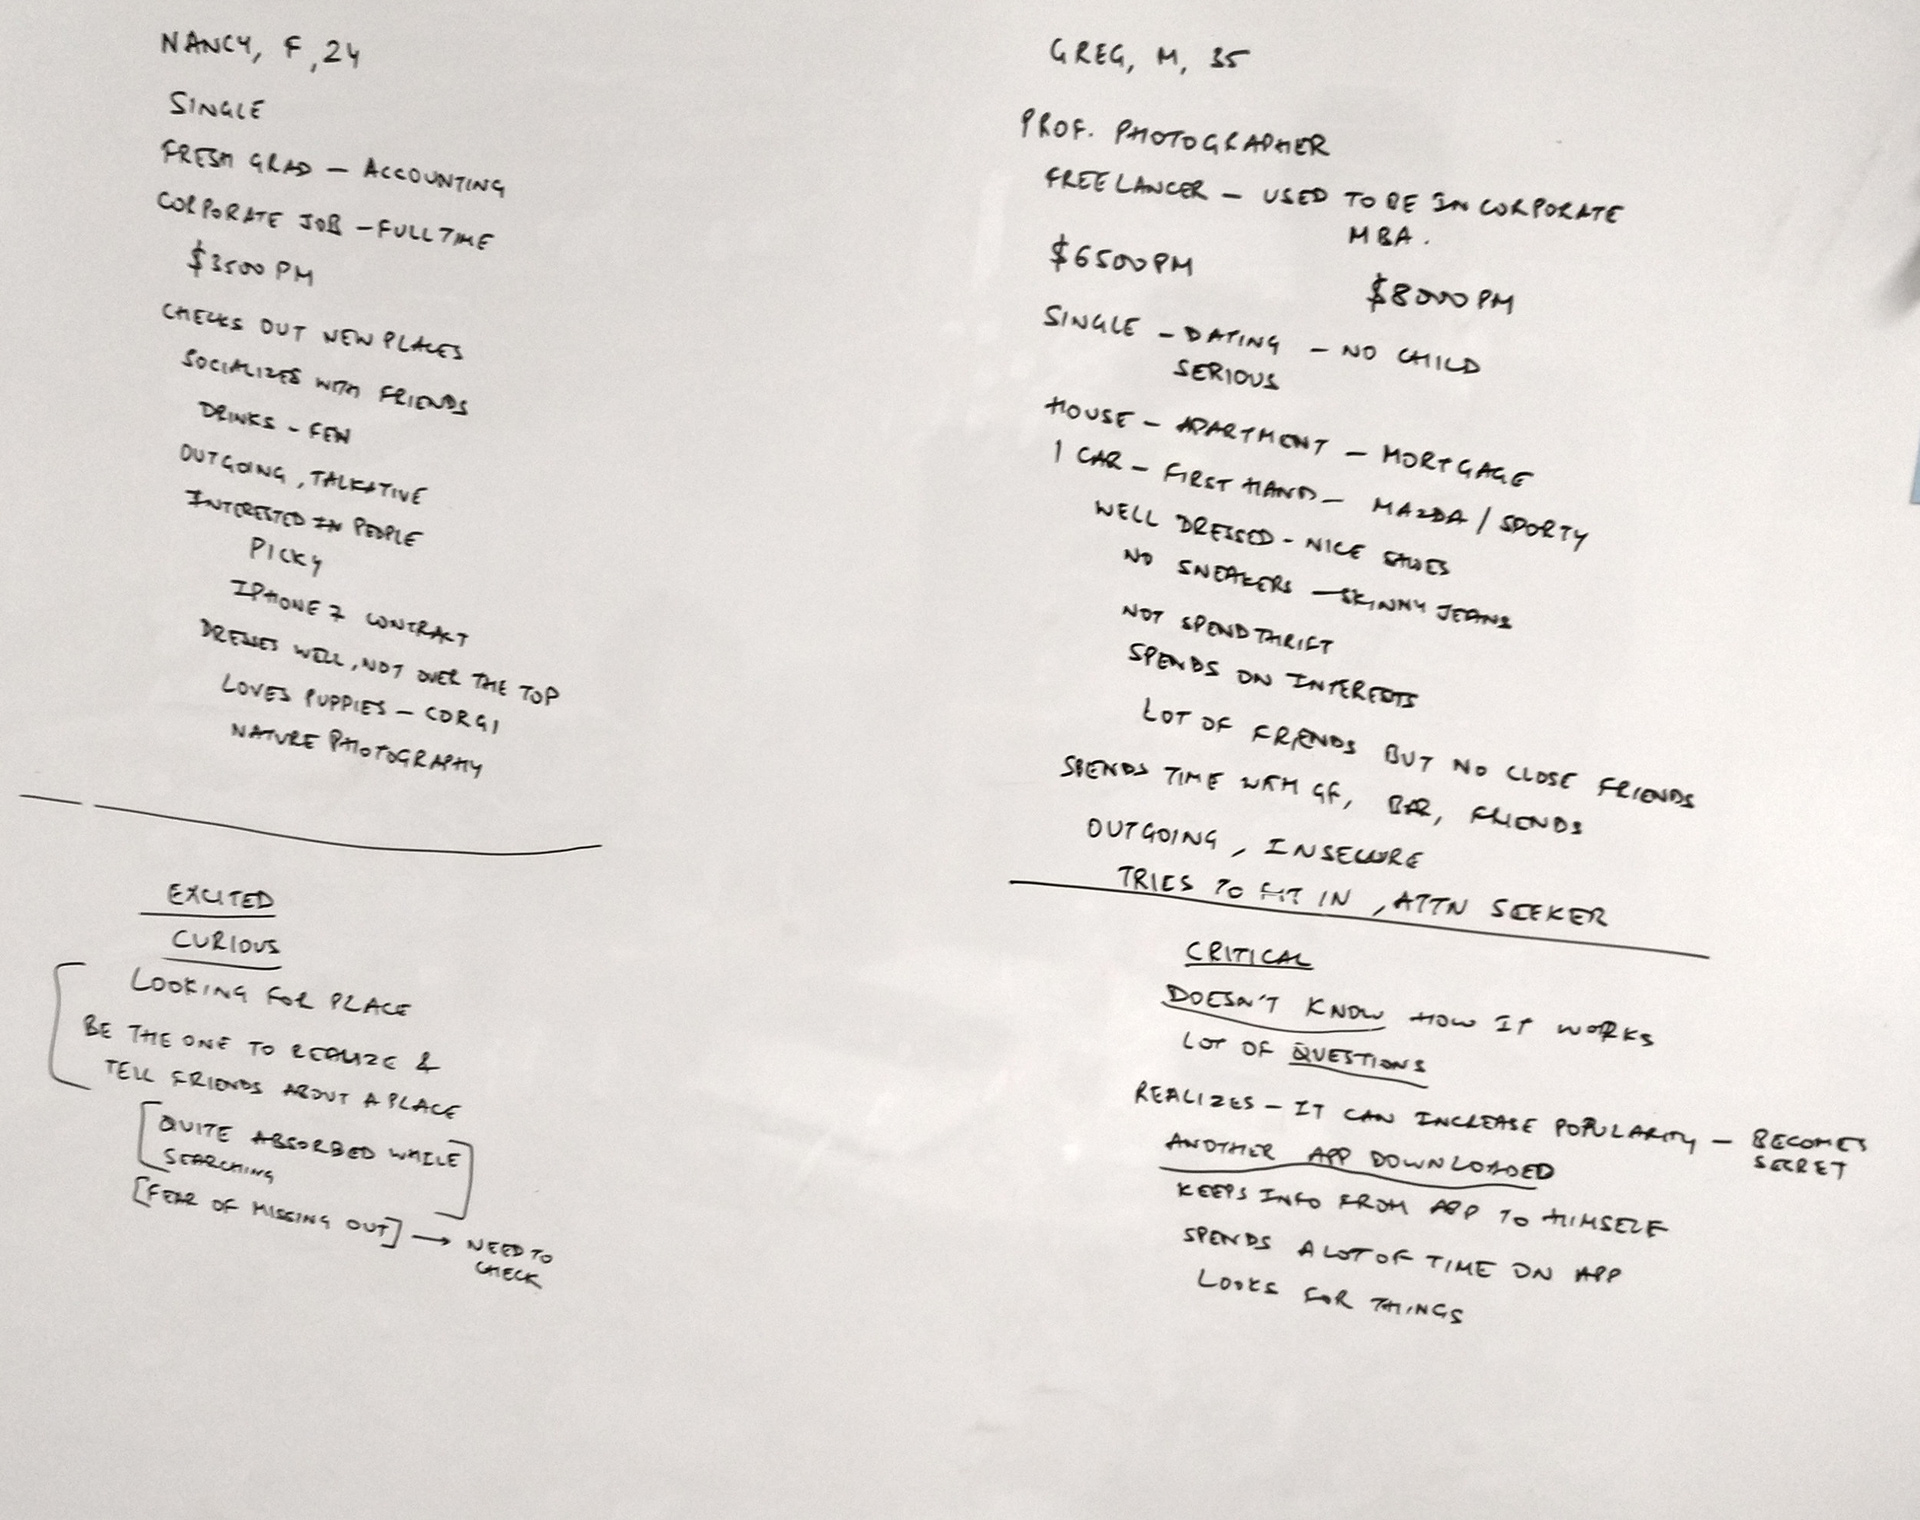 NANCY, F, 24
SINGLE
FRESH GRAD - ACCOUNTING
CORPORATE JOB - FULL TIME
$3500 PM
CHECKS OUT NEW PLACES
SOCIALIZES WITH FRIENDS
DRINKS - FEW
OUTGOING, TALKATIVE
INTERESTED IN PEOPLE
PICKY
IPHONE 7 CONTRACT
DRESSES WELL, NOT OVER THE TOP
LOVES PUPPIES - CORGI
NATURE PHOTOGRAPHY
EXCITED
CURIOUS
LOOKING FOR PLACE
BE THE ONE TO REALIZE &
TELL FRIENDS ABOUT A PLACE
[QUITE ABSORBED WHILE
SEARCHING]
[FEAR OF MISSING OUT] → NEED TO
CHECK
GREG, M, 35
PROF. PHOTOGRAPHER
FREELANCER - USED TO BE IN CORPORATE
MBA.
$6500 PM
$8000 PM
SINGLE - DATING - NO CHILD
SERIOUS
HOUSE - APARTMENT - MORTGAGE
1 CAR - FIRST HAND - MAZDA / SPORTY
WELL DRESSED - NICE SHOES
NO SNEAKERS - SKINNY JEANS
NOT SPENDTHRIFT
SPENDS ON INTERESTS
LOT OF FRIENDS BUT NO CLOSE FRIENDS
SPENDS TIME WITH GF, BAR, FRIENDS
OUTGOING, INSECURE
TRIES TO FIT IN, ATTN SEEKER
CRITICAL
DOESN'T KNOW HOW IT WORKS
LOT OF QUESTIONS
REALIZES - IT CAN INCREASE POPULARITY - BECOMES
SECRET
ANOTHER APP DOWNLOADED
KEEPS INFO FROM APP TO HIMSELF
SPENDS A LOT OF TIME ON APP
LOOKS FOR THINGS